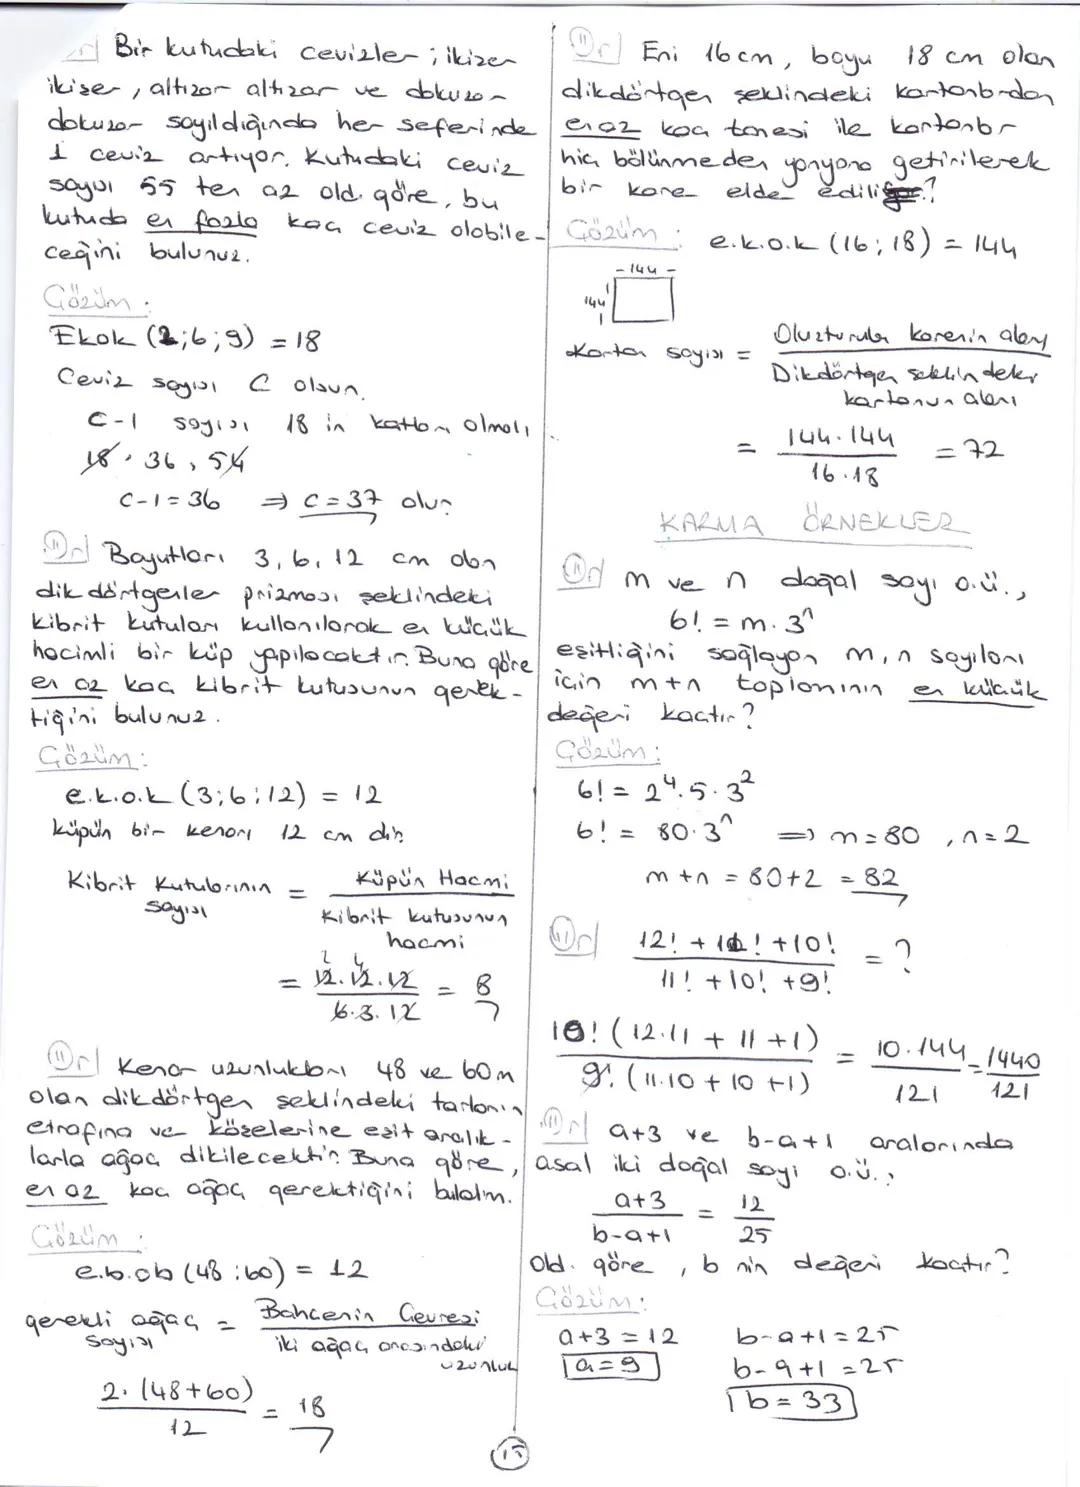 Ör/ Bir kutudaki cevizler ; ikizer
ikişer , altışar altışar ve dokuzar
dokuzar sayıldığında her seferinde
1 ceviz artıyor. Kutudaki ceviz
sayısı 55 ten az old. göre, bu
kutuda en fazla kaç ceviz olabile-
ceğini bulunuz.
Çözüm :
Ekok (2;6;9) = 18
Ceviz sayısı C olsun.
C-1 sayısı 18 in katları olmalı
18, 36, 54
C-1 = 36 ⇒ C = 37 olur
Ör/ Boyutları 3, 6, 12 cm olan
dikdörtgenler prizması şeklindeki
kibrit kutuları kullanılarak en küçük
hacimli bir küp yapılacaktır. Buna göre
en az kaç kibrit kutusunun gerek-
tiğini bulunuz.
Çözüm :
e.k.o.k (3;6;12) = 12
küpün bir kenarı 12 cm dir.
Kibrit Kutularının sayısı = Küpün Hacmi / Kibrit kutusunun hacmi
= 12.12.12 / 6.3.12 = 8
Ör/ Kenar uzunlukları 48 ve 60 m
olan dikdörtgen şeklindeki tarlanın
etrafına ve köşelerine eşit aralık-
larla ağaç dikilecektir. Buna göre,
en az kaç ağaç gerektiğini bulalım.
Çözüm :
e.b.ob (48;60) = 12
gerekli ağaç sayısı = Bahçenin Çevresi / iki ağaç arasındaki uzunluk
2.(48+60) / 12 = 18
Ör/ Eni 16 cm, boyu 18 cm olan
dikdörtgen şeklindeki kartonlardan
en az kaç tanesi ile kartonlar
hiç bölünmeden yanyana getirilerek
bir kare elde edilir?
Çözüm : e.k.o.k (16;18) = 144
- 144 -
144
Karton sayısı = Oluşturulan karenin alanı / Dikdörtgen şeklindeki kartonun alanı
= 144.144 / 16.18 = 72
KARMA ÖRNEKLER
Ör/ m ve n doğal sayı o.ü.,
6! = m.3ⁿ
eşitliğini sağlayan m,n sayıları
için m+n toplamının en küçük
değeri kaçtır?
Çözüm :
6! = 2⁴.5.3²
6! = 80.3ⁿ ⇒ m=80 , n=2
m+n = 80+2 = 82
Ör/ 12! + 11! + 10! / 11! + 10! + 9! = ?
10! (12.11 + 11 + 1) / 9! (11.10 + 10 + 1) = 10.144 / 121 = 1440 / 121
Ör/ a+3 ve b-a+1 aralarında
asal iki doğal sayı o.ü.,
a+3 / b-a+1 = 12 / 25
old. göre , b nin değeri kaçtır?
Çözüm :
a+3 = 12 b-a+1 = 25
a=9 b-9+1 = 25
b = 33
15